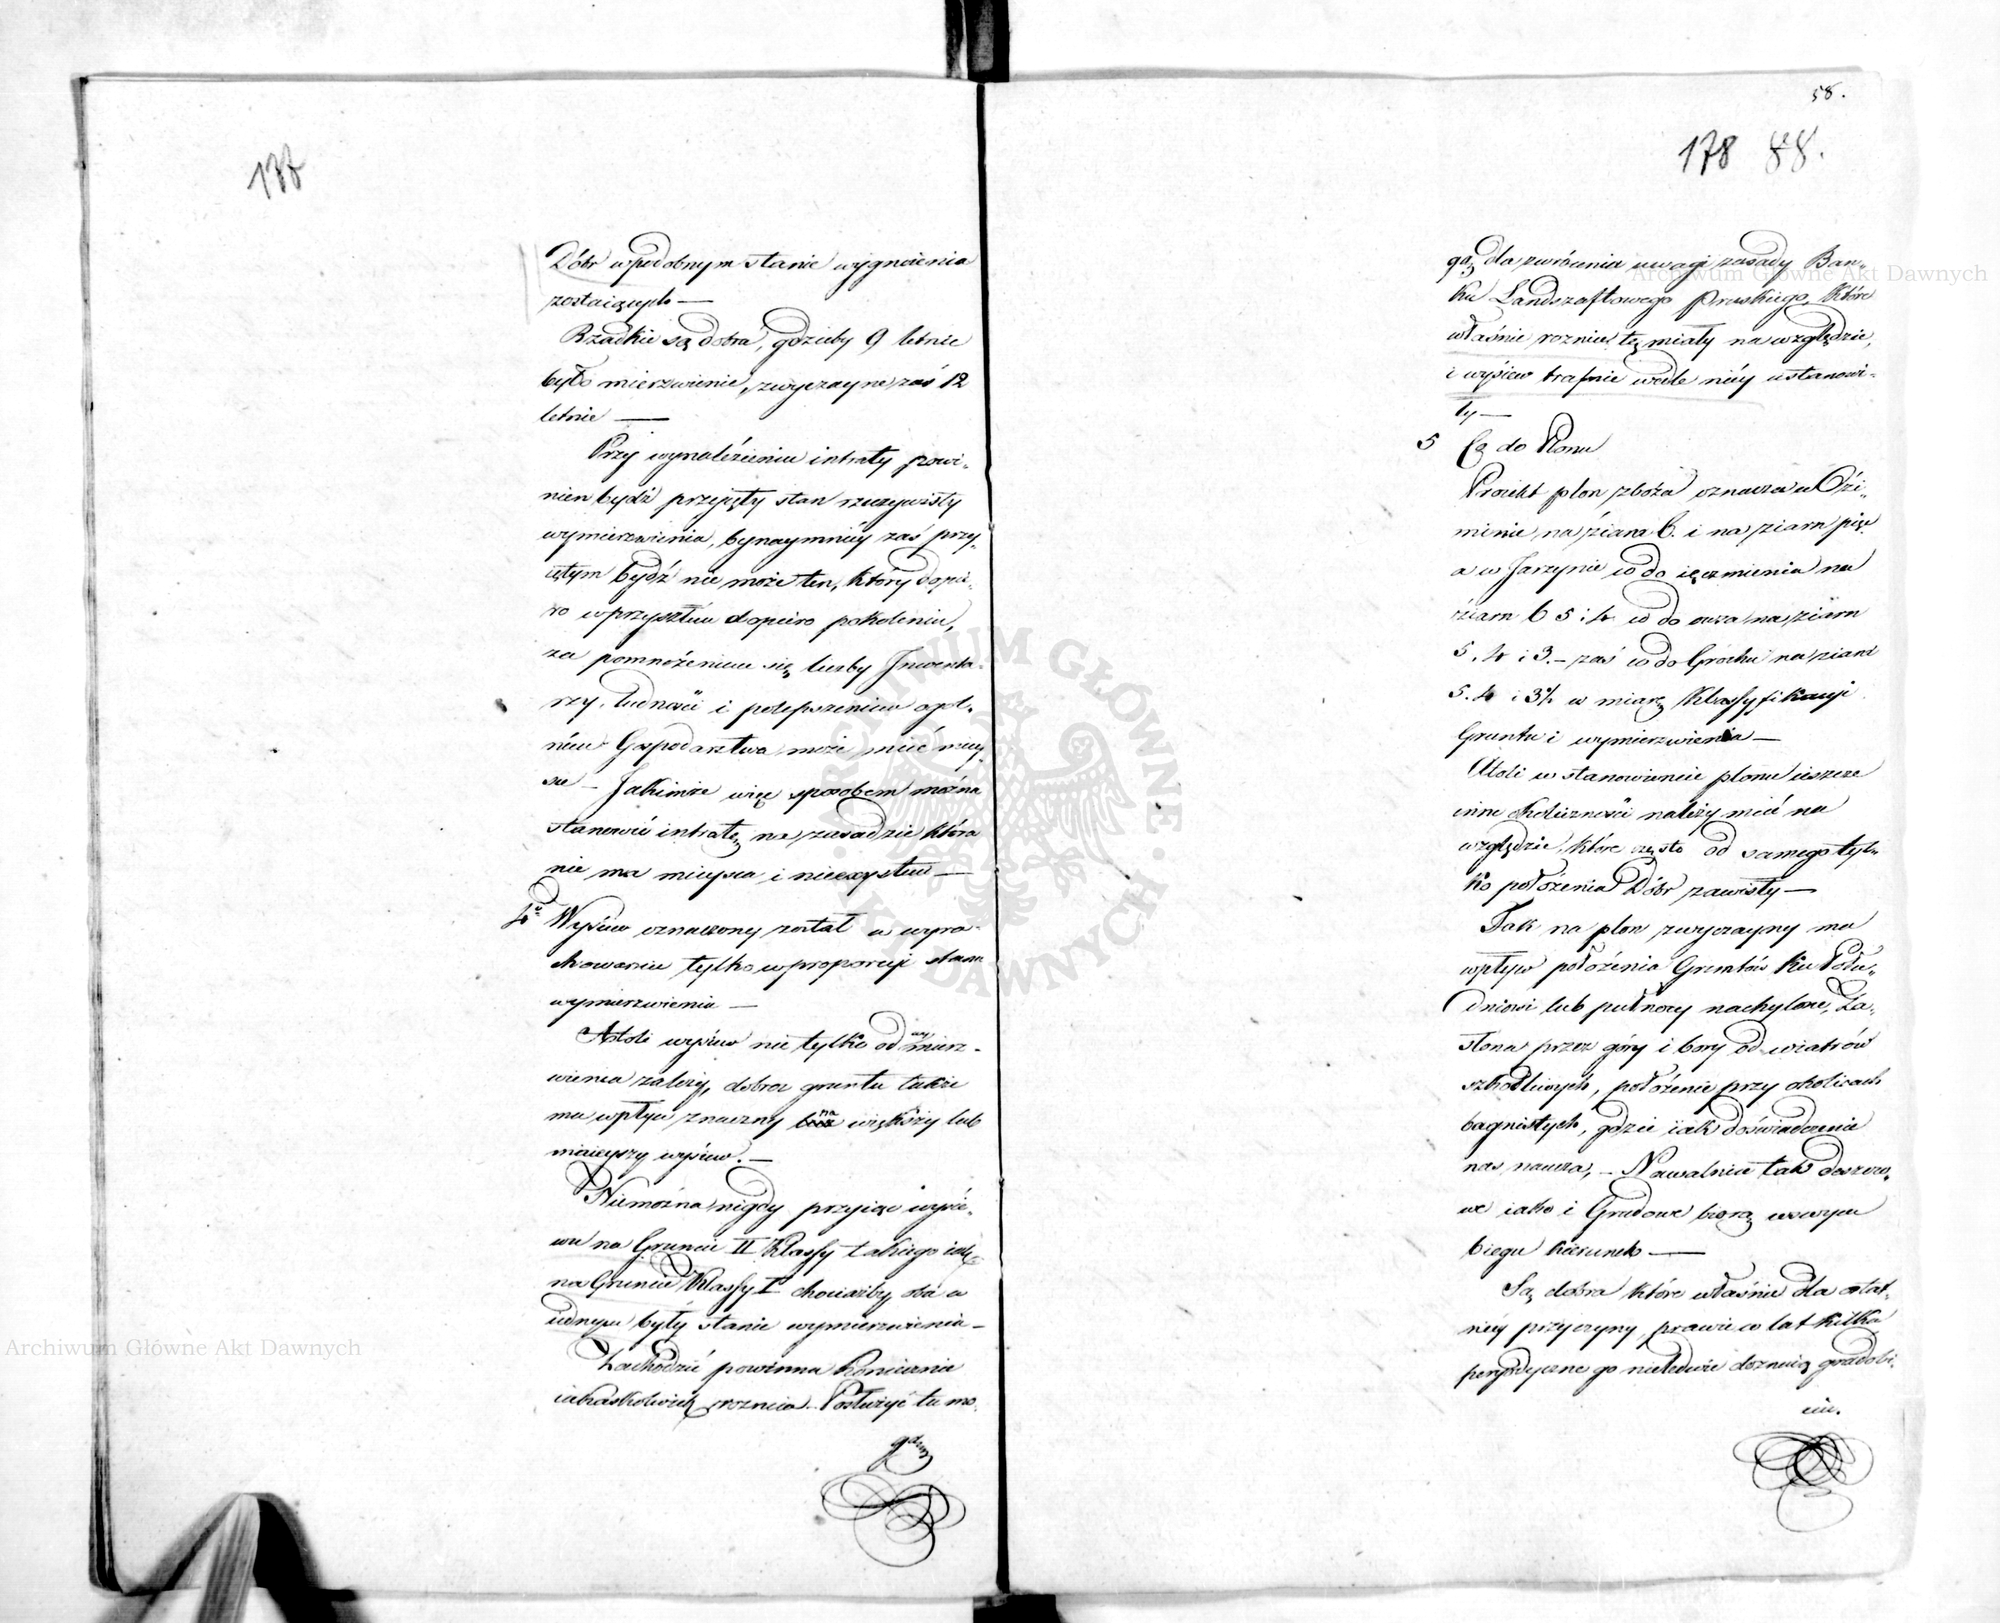 177
Dóbr w podobnym stanie wygnoienia
zostaiących —
Rzadkie są dobra, gdzieby 9 letnie
było mierzwienie, zwyczayne zaś 12
letnie —
Przy wynalezieniu intraty powi-
nien bydź przyięty stan rzeczywisty
wymierzwienia, bynaymniéy zaś przy-
iętym bydź nie może ten, który dopie-
ro w przyszłem dopiero pokoleniu,
za pomnożeniem się liczby Inwenta-
rzy, ludności i polepszeniem ogól-
nem Gospodarstwa może mieć miey-
sce — Jakimże więc sposobem można
stanowić intratę na zasadzie która
nie ma mieysca i nieexystuie —
4to Wysiew oznaczony został w wyra-
chowaniu tylko w proporcyi stanu
wymierzwienia —
Atoli wysiew nie tylko od wymierz-
wienia zależy, dobroć gruntu także
ma wpływ znaczny na większy lub
mnieyszy wysiew. —
Niemożna nigdy przyiąć wysie-
wu na Gruncie II Klassy takiego iak
na Gruncie Klassy I chociażby oba w
iednym były stanie wymierzwienia —
Zachodzić powinna koniecznie
iakaśkolwiek roznica. Posłużyć tu mo-
gą
58.
178 88.
gą dla zwrócenia uwagi zasady Ban-
ku Landszaftowego Pruskiego, które
właśnie roznicę tę miały na względzie,
i wysiew trafnie wedle niéy ustanowi-
ły —
5 Co do Plonu
Proiekt plon zboża oznacza w Ozi-
minie na ziarn 6. i na ziarn pięć
a w Jarzynie co do ięczmienia na
ziarn 6 5 i 4 co do owsa na ziarn
5. 4 i 3. — zaś co do Grochu na ziarn
5. 4 i 3½ w miarę Klassyfikacyi
Gruntu i wymierzwienia —
Atoli w stanowieniu plonu ieszcze
inne okoliczności należy mieć na
względzie, które często od samego tyl-
ko położenia Dóbr zawisły —
Tak na plon zwyczayny ma
wpływ położenia Gruntów ku Połu-
dniowi lub pułnocy nachylone, Za-
słona przez góry i bory od wiatrów
szkodliwych, położenie przy okolicach
bagnistych, gdzie iak doświadczenie
nas naucza, — Nawalnice tak deszczo-
we iako i Gradowe biorą w swym
biegu kierunek —
Są dobra które właśnie dla ostat-
niéy przyczyny, prawie co lat kilka
peryodycznego nieledwie doznaią gradobi-
cia.
Archiwum Główne Akt Dawnych
Archiwum Główne Akt Dawnych
ARCHIWUM GŁÓWNE · AKT DAWNYCH ·